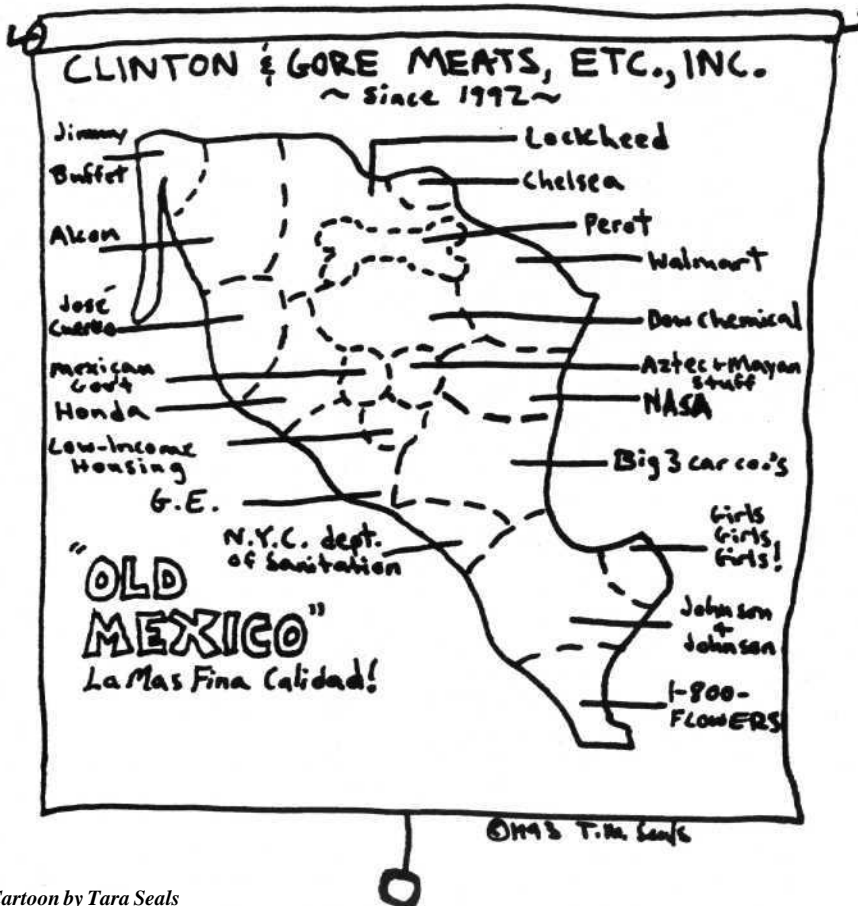 CLINTON & GORE MEATS, ETC., INC.
~ Since 1992 ~
Jimmy
Buffet
Alcon
José
Cuervo
Mexican
Gov't
Honda
Low-Income
Housing
G.E.
N.Y.C. dept.
of Sanitation
Lockheed
Chelsea
Perot
Walmart
Dow Chemical
Aztec + Mayan
Stuff
NASA
Big 3 car co.'s
Girls
Girls
Girls!
Johnson
+
Johnson
1-800-
FLOWERS
"OLD
MEXICO"
La Mas Fina Calidad!
©1993 T.M. Seals
Cartoon by Tara Seals